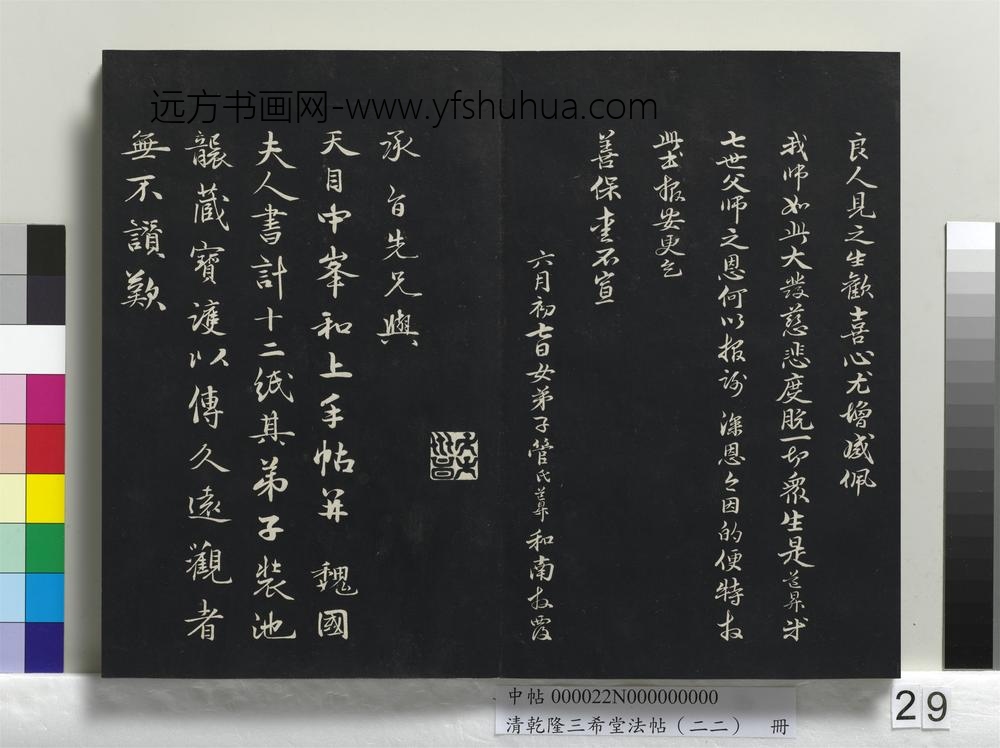 远方书画网-www.yfshuhua.com
良人見之生歡喜心尤增感佩
我師如此大發慈悲度脫一切衆生是道昇
七世父師之恩何以報謝 深恩今因的便特
此報安更乞
善保 不宣
六月初七日女弟子管氏道昇和南拜覆
承旨先兄與
天目中峯和上手帖并 魏國
夫人書計十二紙其弟子裝池
襲藏寶護以傳久遠觀者
無不讚歎
中帖 000022N000000000
清乾隆三希堂法帖（二二） 冊
29